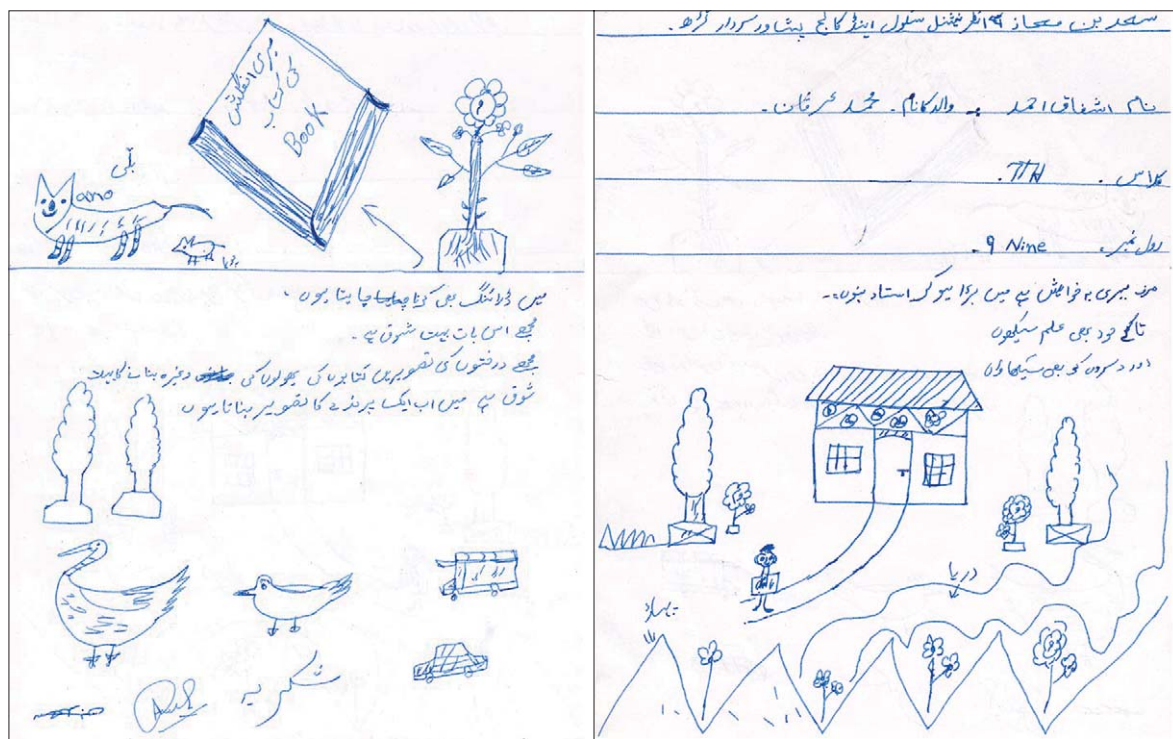 میری انگلیش
کی کتاب
Book
بلی
ano
میں ڈرائنگ بھی کرنا چاہتا ہوں۔
مجھے اس بات بہت شوق ہے۔
مجھے درختوں کی تصویریں کتابوں کی پھولوں کی وغیرہ بنانے کا بہت
شوق ہے میں اب ایک پرندے کا تصویر بناتا ہوں
شکریہ
سعد بن معاذ انٹرنیشنل سکول اینڈ کالج پشاور سردار گڑھ۔
نام اشفاق احمد . والد کا نام . محمد عرفان .
کلاس . 7TH.
رول نمبر 9 Nine .
میری یہ خواہش ہے میں بڑا ہو کر استاد بنوں۔
تاکے خود بھی علم سیکھوں
اور دسروں کو بھی سیکھاوں
دریا
پہاڑ